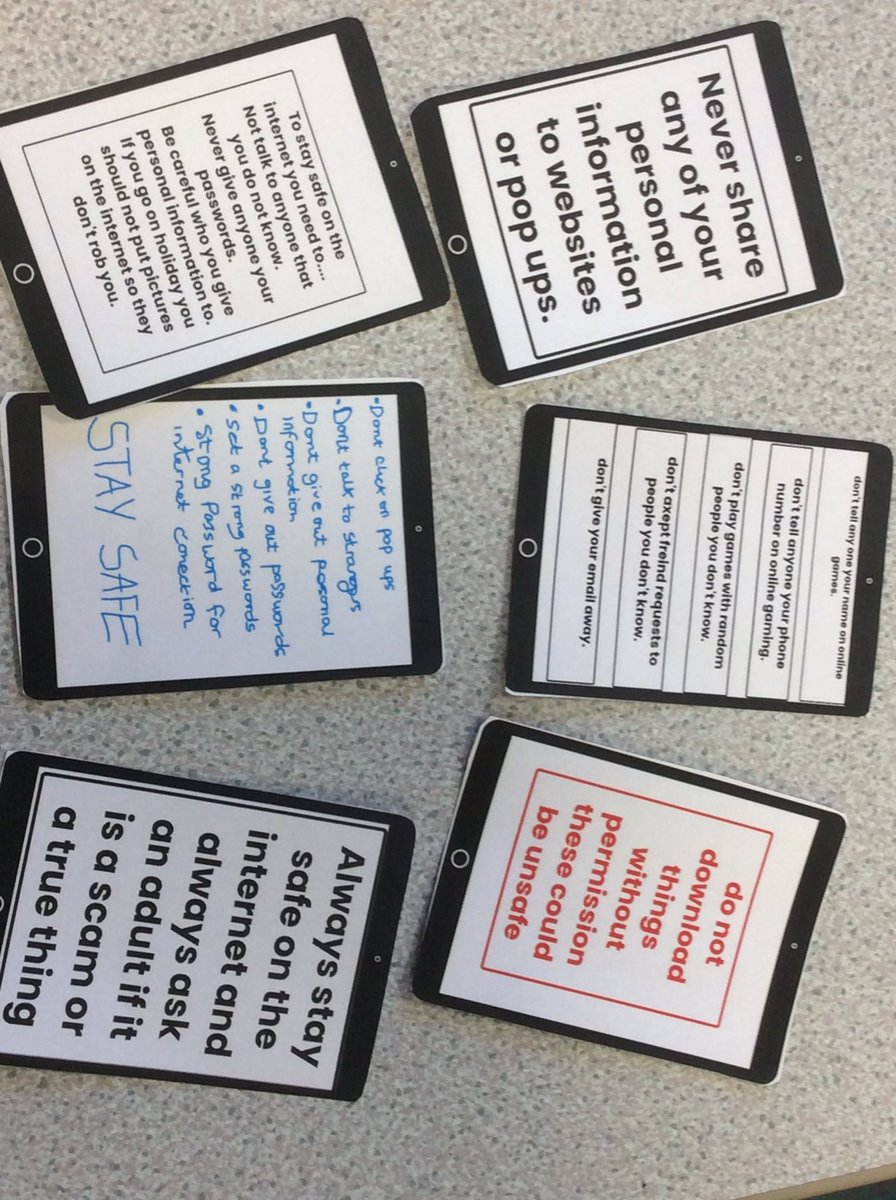 To stay safe on the
internet you need to....
Not talk to anyone that
you do not know.
Never give anyone your
passwords.
Be careful who you give
personal information to.
If you go on holiday you
should not put pictures
on the internet so they
don't rob you.
Never share
any of your
personal
information
to websites
or pop ups.
• Dont click on pop ups
• Dont talk to strangers
• Dont give out personal
information
• Dont give out passwords
• Set a strong passwords
• Strong Password for
internet conection
STAY SAFE
don't tell any one your name on online
games.
don't tell anyone your phone
number on online gaming.
don't play games with random
people you don't know.
don't axept freind requests to
people you don't know.
don't give your email away.
Always stay
safe on the
internet and
always ask
an adult if it
is a scam or
a true thing
do not
download
things
without
permission
these could
be unsafe